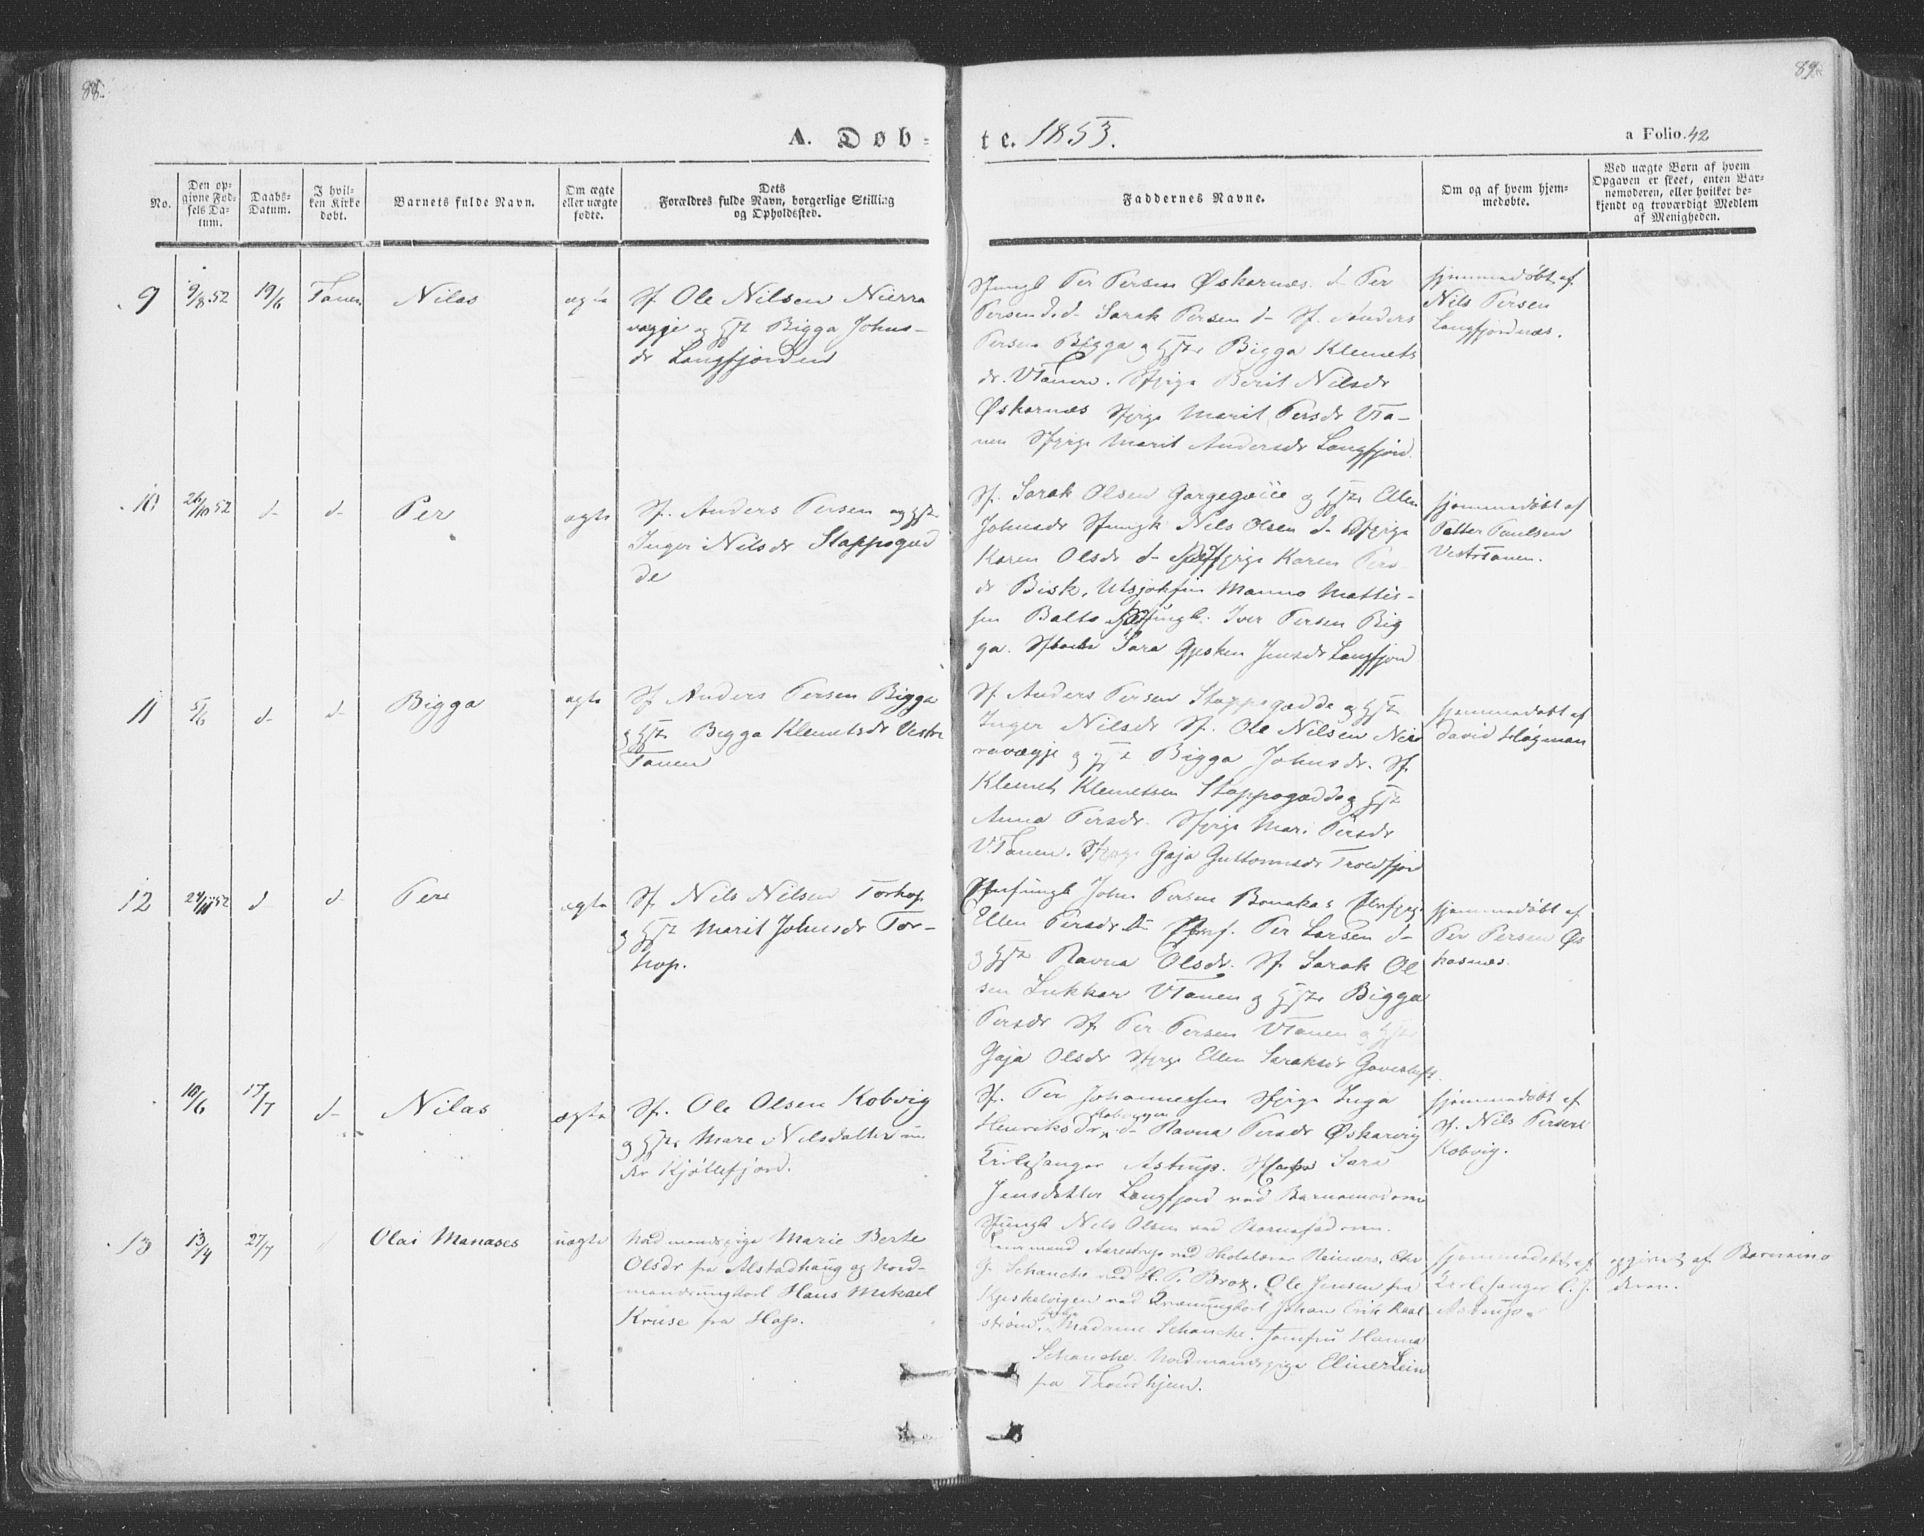 88.
89.
A. Døb-
te. 1853.
a Folio. 42
No.
Den op-
givne Fød-
sels Da-
tum.
Daabs-
Datum.
I hvil-
ken Kirke
døbt.
Barnets fulde Navn.
Om ægte
eller uægte
fødte.
Dets
Forældres fulde Navn, borgerlige Stilling
og Opholdssted.
Faddernes Navne.
Om og af hvem hjem-
medøbte.
Ved uægte Børn af hvem
Opgaven er skeet, enten Bar-
nemoderen, eller hvilket be-
kjendt og troværdigt Medlem
af Menigheden.
9
9/8 52
19/6
Tanen
Nilas
ægte
Sf. Ole Nilsen Nierra
vagje og Hst Bigga Johns-
dr Langfjorden
Sfungk Per Persen Øskarnæs. d- Per
Persen d. d- Sarak Persen d- Sf. Anders
Persen Bigga og Hstr Bigga Klemets
dr. VTanen. Sfpige Berit Nilsdr
Øskarnæs Sfpige Marit Persdr VTa-
nen Sfpige Marit Andersdr Langfjord.
hjemmedøbt af
Nils Persen
Langfjordnæs.
10
26/10 52
d-
d-
Per
ægte
Sf. Anders Persen og Hstr
Inger Nilsdr Stappogæd
de
Sf. Sarak Olsen Gargegoice og Hstr Ellen
Johnsdr Sfungk Nils Olsen d- Sfpige
Karen Olsdr d- Sfpige Karen Pers
dr Bisk. Utsjokfin Manno Mattis-
sen Balto Sfungk. Iver Persen Big
ga. Sara Gjesken Jensdr Langfjord
hjemmedøbt af
Petter Paulsen
VestrTanen.
11
5/6
d-
d-
Bigga
ægte
Sf Anders Persen Bigga
og Hstr Bigga Klemetsdr Vestre
Tanen
Sf Anders Persen Stappogædde og Hst
Inger Nilsdr Sf. Ole Nilsen Nier
ravægje og Hst Bigga Johnsdr. Sf.
Klemet Klemetsen Stappogædde og Hst
Anna Persdr. Sfpige Mari Persdr
V.Tanen. Sfpige Gaja Guttormsdr Troldfjor
hjemmedøbt af
David Hagman
12
24/11 52
d
d-
Per
ægte
Sf. Nils Nilsen Torhop
og Hst Marit Johnsdr Tor-
hop.
John Persen Bonakas
Ellen Persdr d- Per Larsen d-
og Hst Ravna Olsdr. Sf. Sarak Ol
sen Lukkar VTanen og Hstr Bigga
Persdr Sf Per Persen VTanen og Hstr
Gaja Olsdr Sfpige Ellen Saraksdr
hjemmedøbt af
Per Persen Øs
karnæs.
10/6
17/7
d-
Nilas
ægte
Sf. Ole Olsen Kobvig
og Hstr Mare Nilsdatter un
der Kjøllefjord.
Sf. Per Johannessen Sfpige Inga
Henriksdr d- Ravna Persdr Øskarvig
Kirkesanger Astrup. Sara
Jensdatter Langfjord ved Barnemoderen
Sfungk Nils Olsen ved Barnefaderen.
hjemmedøbt af
Sf. Nils Persen
Kobvig.
13
13/4
27/7
Olai Manases
uægte
Nordmandspige Marie Berte
Olsdr fra Alstadhaug og Nord-
mandsungkarl Hans Mikael
Kruse fra Hop.
Lensmand Aarestrup ved Skolelærer Reiners, Chr
G. Schanche ved H. P. Brox. Ole Jensen fra
Kjeskelvigen ved Kvænungkarl Johan Erik Kaal
strøm, Madame Schanche. Jomfru Hanna
Schanche. Nordmandspige Elmerlein
fra Trondhjem.
hjemmedøbt af
Kirkesanger C. J.
Astrup.
opgivet af Barnemo
deren.